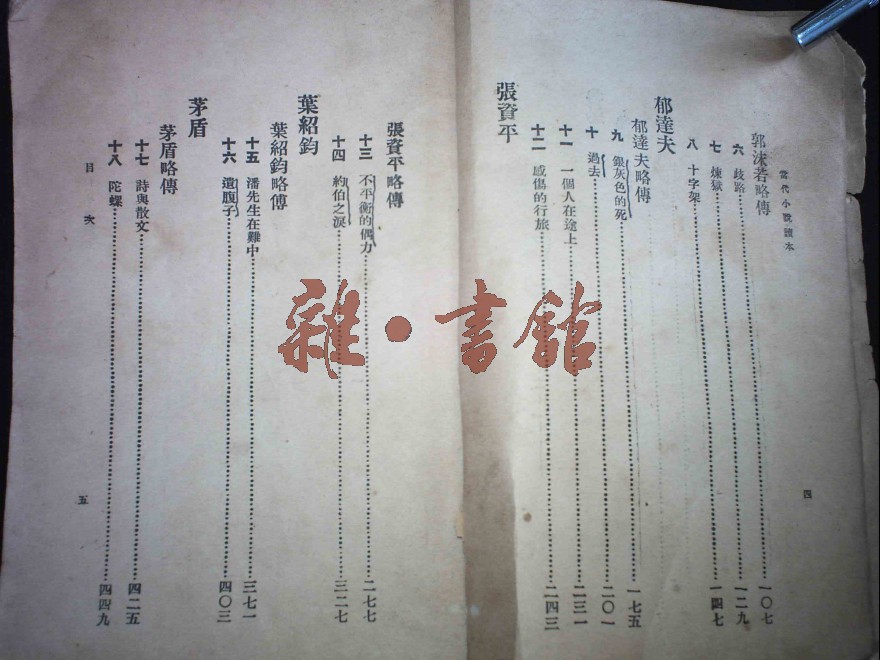 當代小說讀本
郭沫若略傳
六 歧路 一〇七
七 煉獄 一二九
八 十字架 一四七
郁達夫
郁達夫略傳
九 銀灰色的死 一七五
十 過去 二〇一
十一 一個人在途上 二三一
十二 感傷的行旅 二四三
張資平
四
張資平略傳
十三 不平衡的偶力 二七七
十四 約伯之淚 三二七
葉紹鈞
葉紹鈞略傳
十五 潘先生在難中 三七一
十六 遺腹子 四〇三
茅盾
茅盾略傳
十七 詩與散文 四二五
十八 陀螺 四四九
目次
五
雜·書館